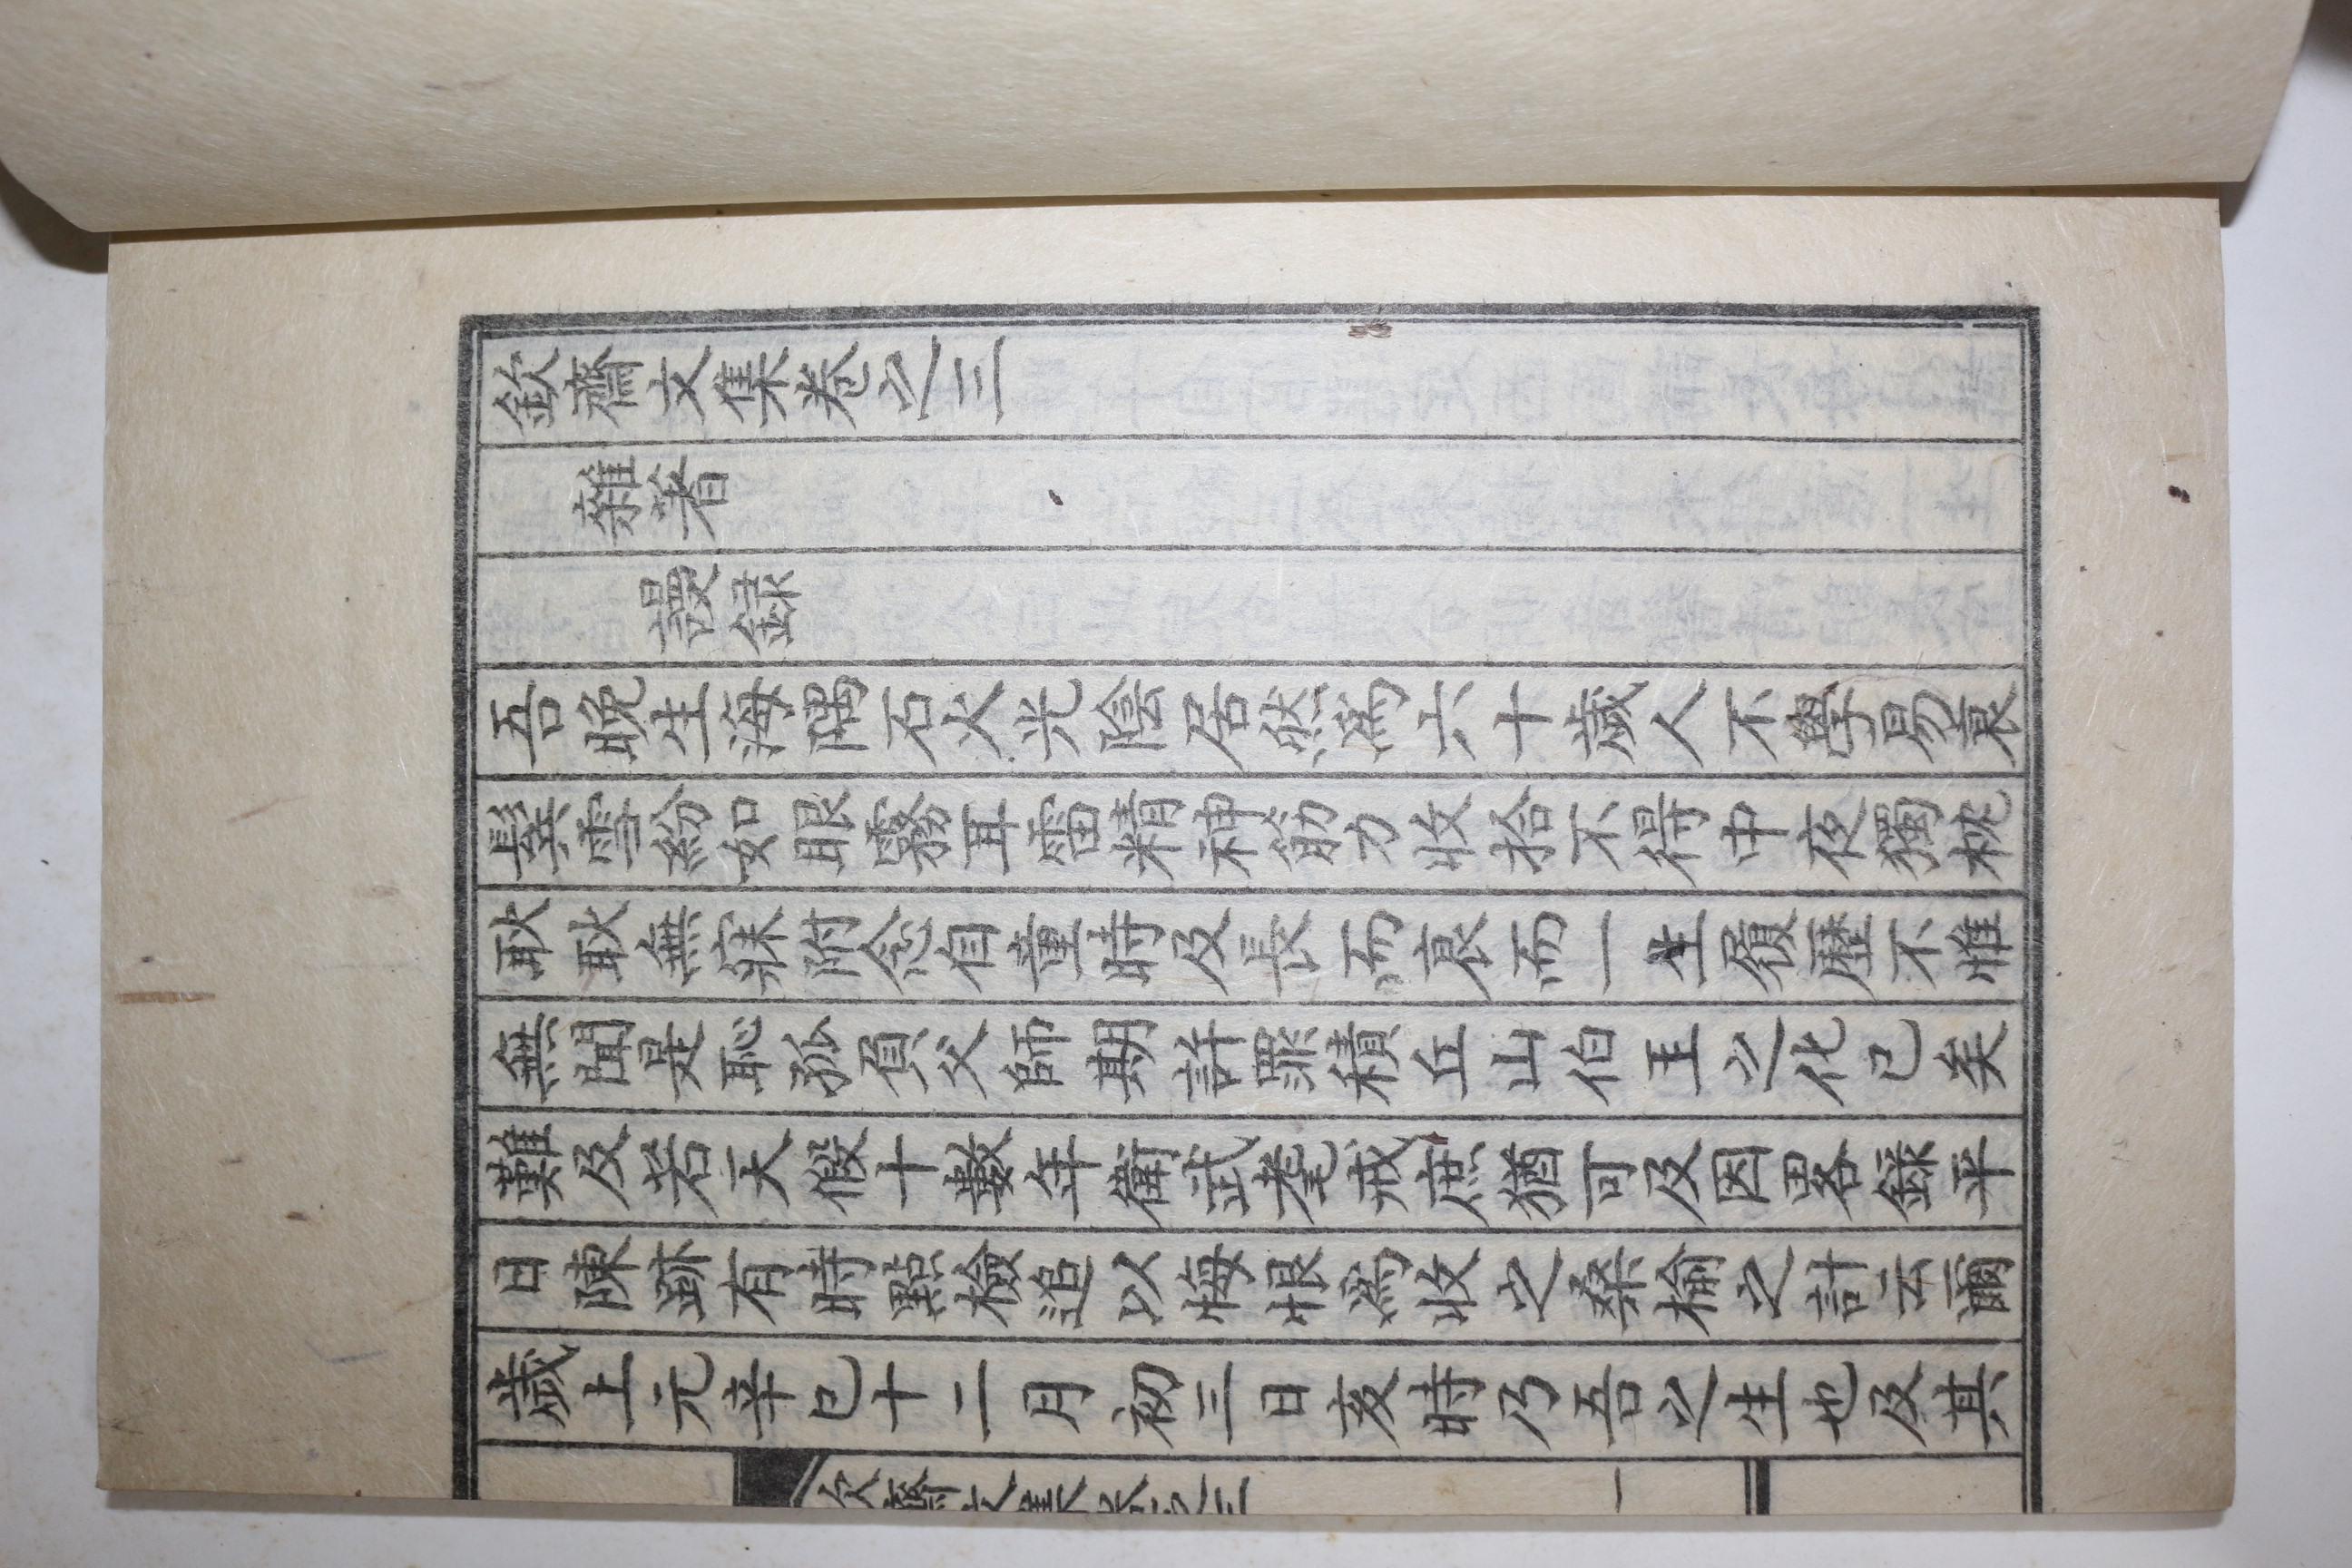 欽齋文集卷之三
雜著
謾錄
吾晚生海隅石火光陰居然爲六十歲人不學易衰
鬓雪紛如眼霧耳雷精神筋力收拾不得中夜獨枕
耿耿無寐附念自童時及長而衰而一生履歷不惟
無聞是恥孤負父師期許罪積丘山伯玉之化已矣
難及若天假十數年衛武耄戒庶猶可及因畧錄平
日陳跡有時點檢追以悔恨爲收之桑榆之計云爾
歲上元辛巳十二月初三日亥時乃吾之生也及其
欽齋文集卷之三 一